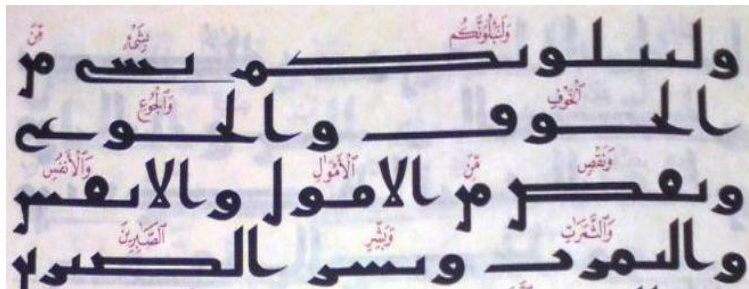 وَلَنَبْلُوَنَّكُم بِشَيْءٍ مِّنَ
ولنبلونكم بشيء من
ٱلْخَوْفِ وَٱلْجُوعِ
الخوف والجوع
وَنَقْصٍ مِّنَ ٱلْأَمْوَٰلِ وَٱلْأَنفُسِ
ونقص من الامول والانفس
وَٱلثَّمَرَٰتِ وَبَشِّرِ ٱلصَّٰبِرِينَ
والثمرت وبشر الصبرين